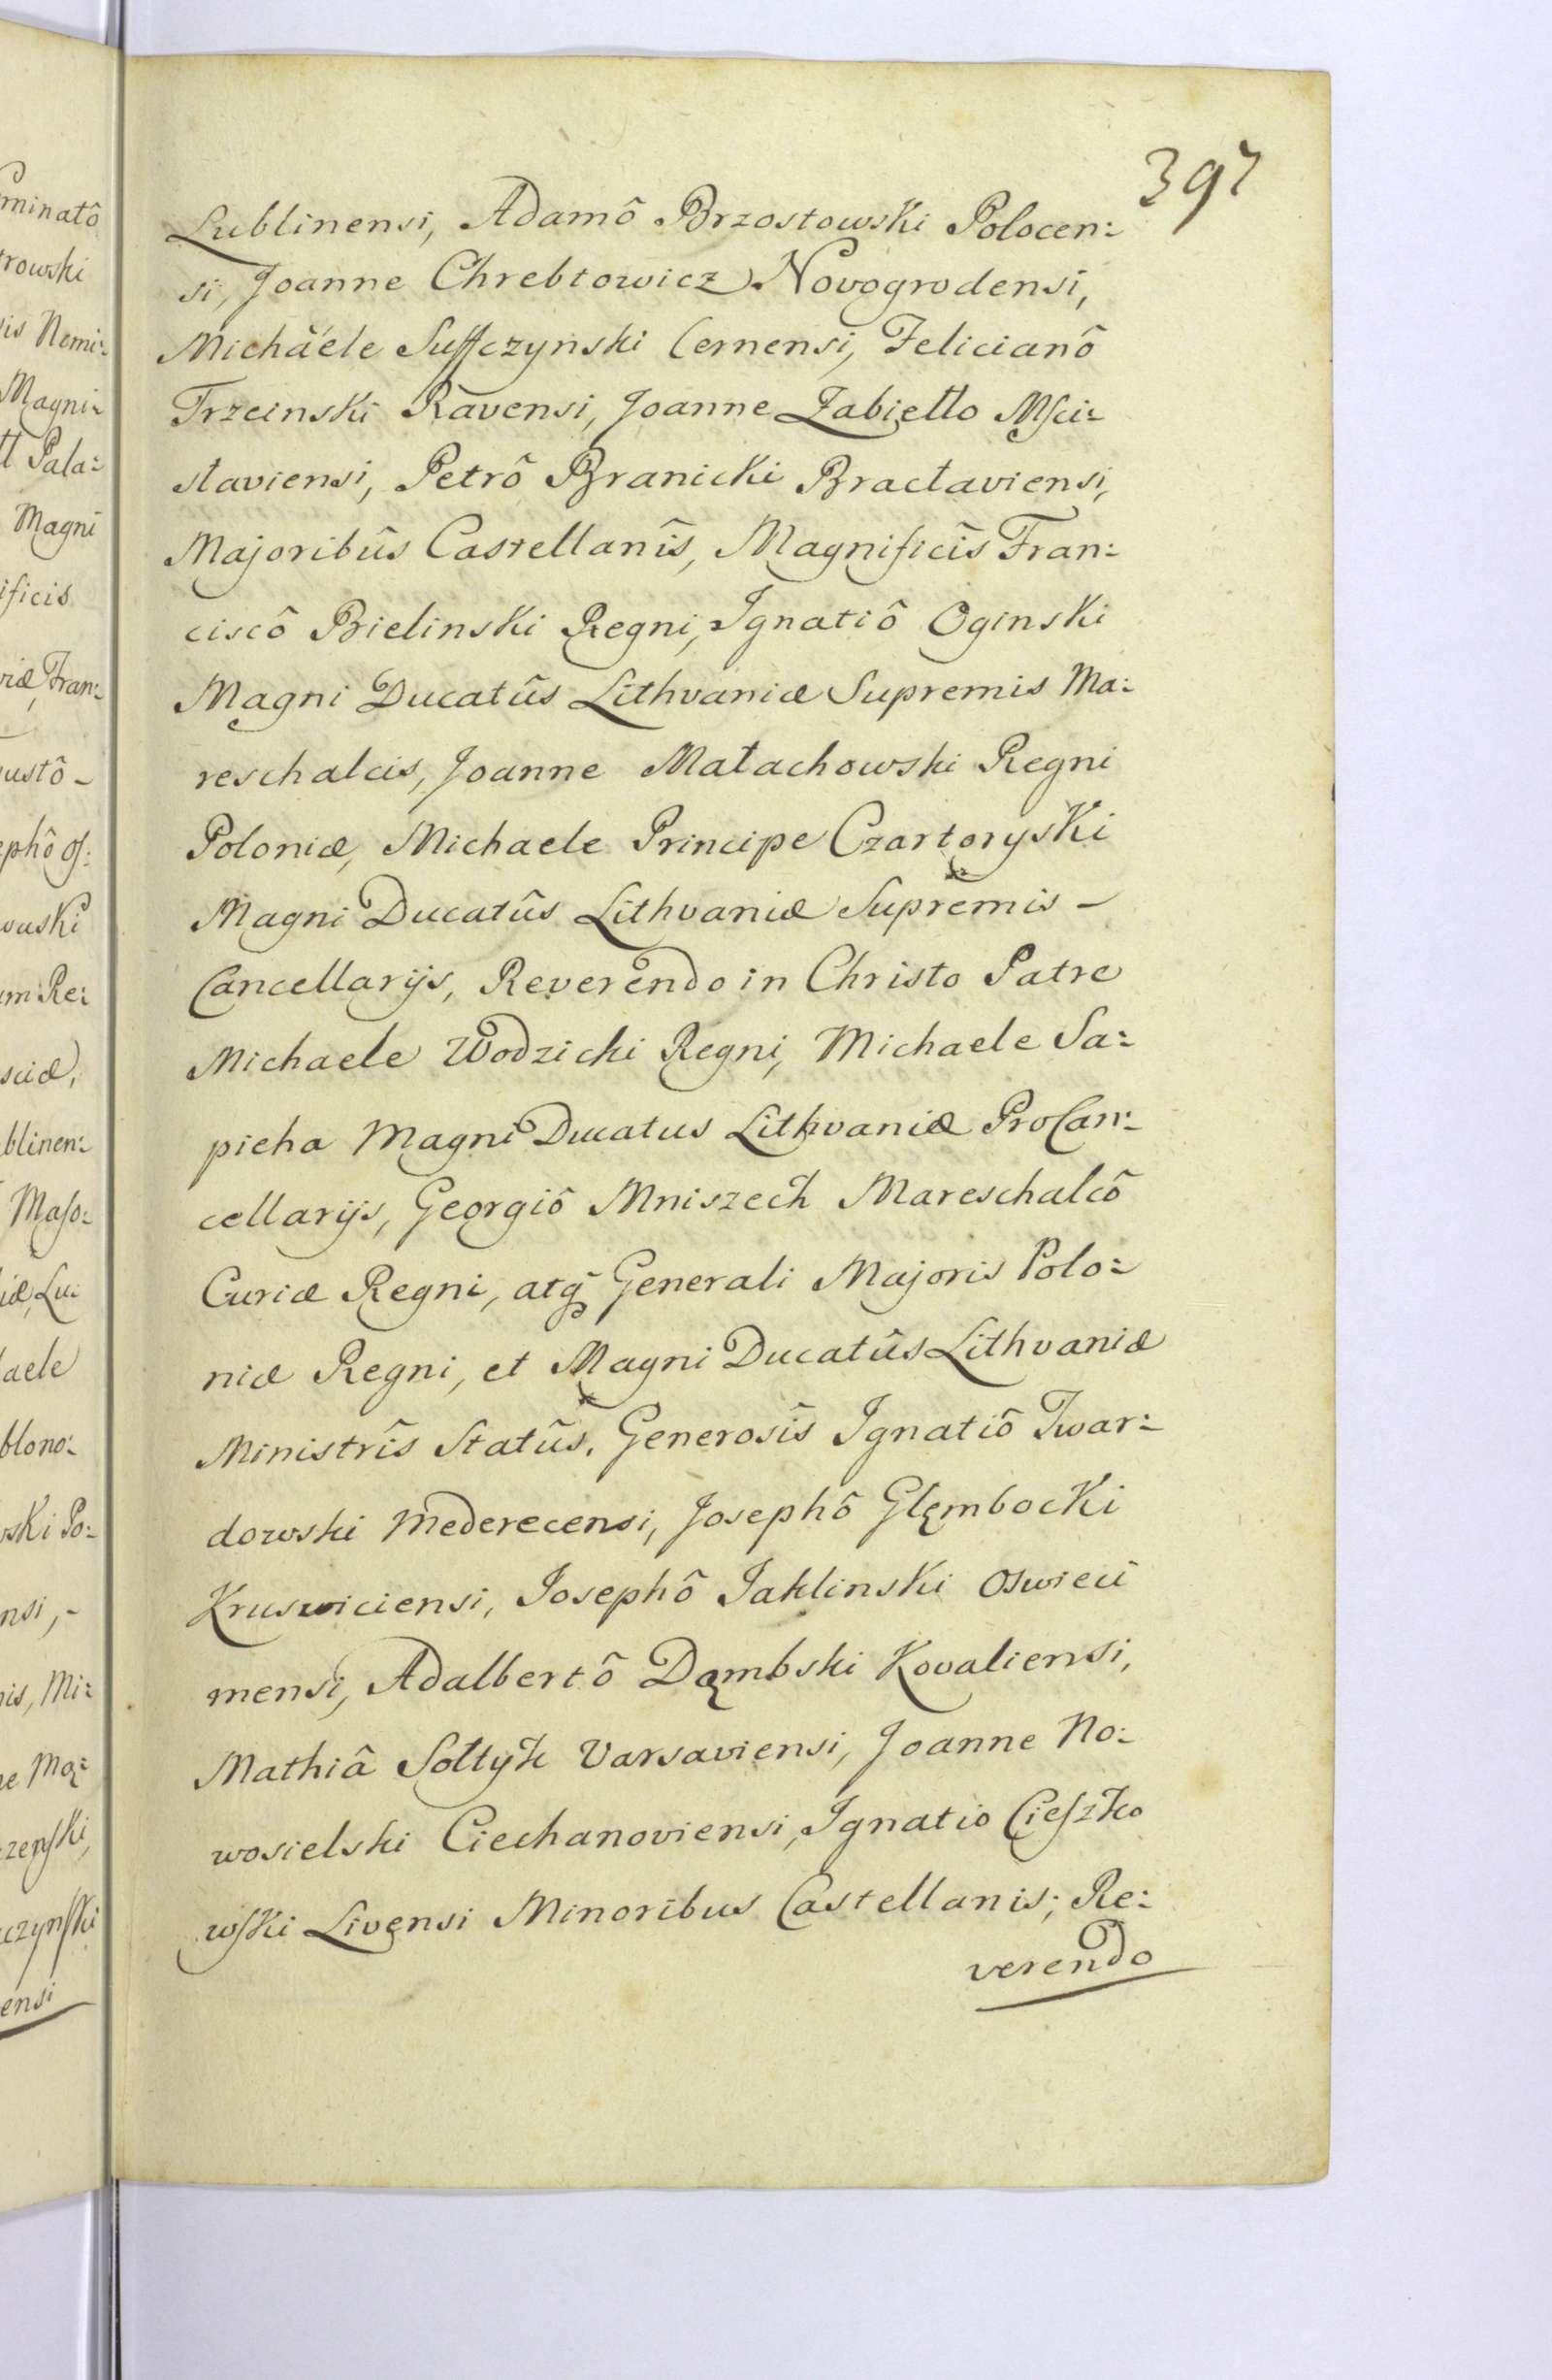 397
Lublinensi, Adamô Brzostowski Polocen:
si, Joanne Chrebtowicz Novogrodensi,
Michaéle Suffczynski Cernensi, Felicianô
Trzcinski Ravensi, Joanne Zabiełło Msci:
slaviensi, Petrô Branicki Braclaviensi,
Majoribûs Castellanîs, Magnificîs Fran:
ciscô Bielinski Regni, Ignatiô Oginski
Magni Ducatûs Lithvaniæ Supremis Ma:
reschalcis, Joanne Małachowski Regni
Poloniæ, Michaele Principe Czartoryski
Magni Ducatûs Lithvaniæ Supremis –
Cancellarijs, Reverendo in Christo Patre
Michaele Wodzicki Regni, Michaele Sa:
pieha Magni Ducatus Lithvaniæ ProCan:
cellarijs, Georgiô Mniszech Mareschalcô
Curiæ Regni, atq Generali Majoris Polo:
niæ Regni, et Magni Ducatûs Lithvaniæ
Ministrîs Statûs. Generosîs Ignatiô Twar:
dowski Mederecensi, Josephô Głęmbocki
Kruswiciensi, Josephô Jaklinski Oswieci
mensi, Adalbertô Dąmbski Kovaliensi,
Mathiâ Sołtyk Varsaviensi, Joanne No:
wosielski Ciechanoviensi, Ignatio Cieszko
wski Livensi Minoribus Castellanis; Re:
verendo
minatô
rowski
is Nemi:
Magni:
tt Pala:
Magni
ificis
riæ, Fran:
ustô –
ephô Os:
wuski
um Re:
sciæ,
blinen:
Maso:
iæ, Lu:
aele
blono:
ski Po:
nsi, –
is, Mi:
ne Mą:
zenski,
czynski
ensi